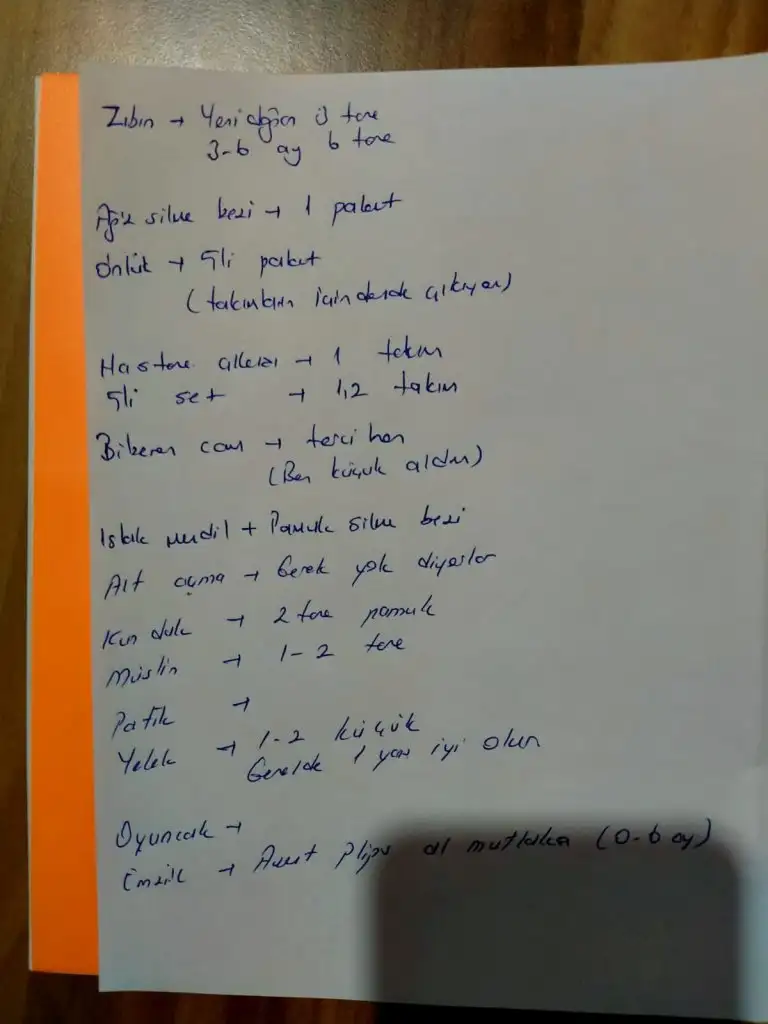 Zıbın → Yeni doğan 3 tane
3-6 ay 6 tane
Ağız silme bezi → 1 paket
Önlük → 5li paket
(takımların içinden de çıkıyor)
Hastane çıkışı → 1 takım
5li set → 1,2 takım
Biberon cam → tercihen
(Ben küçük aldım)
Islak mendil + Pamuk silme bezi
Alt açma → Gerek yok diyorlar
Kundak → 2 tane pamuk
Müslin → 1-2 tane
Patik →
Yelek → 1-2 küçük
Genelde 1 yaş iyi olur
Oyuncak →
Emzik → Avent al mutlaka (0-6 ay)